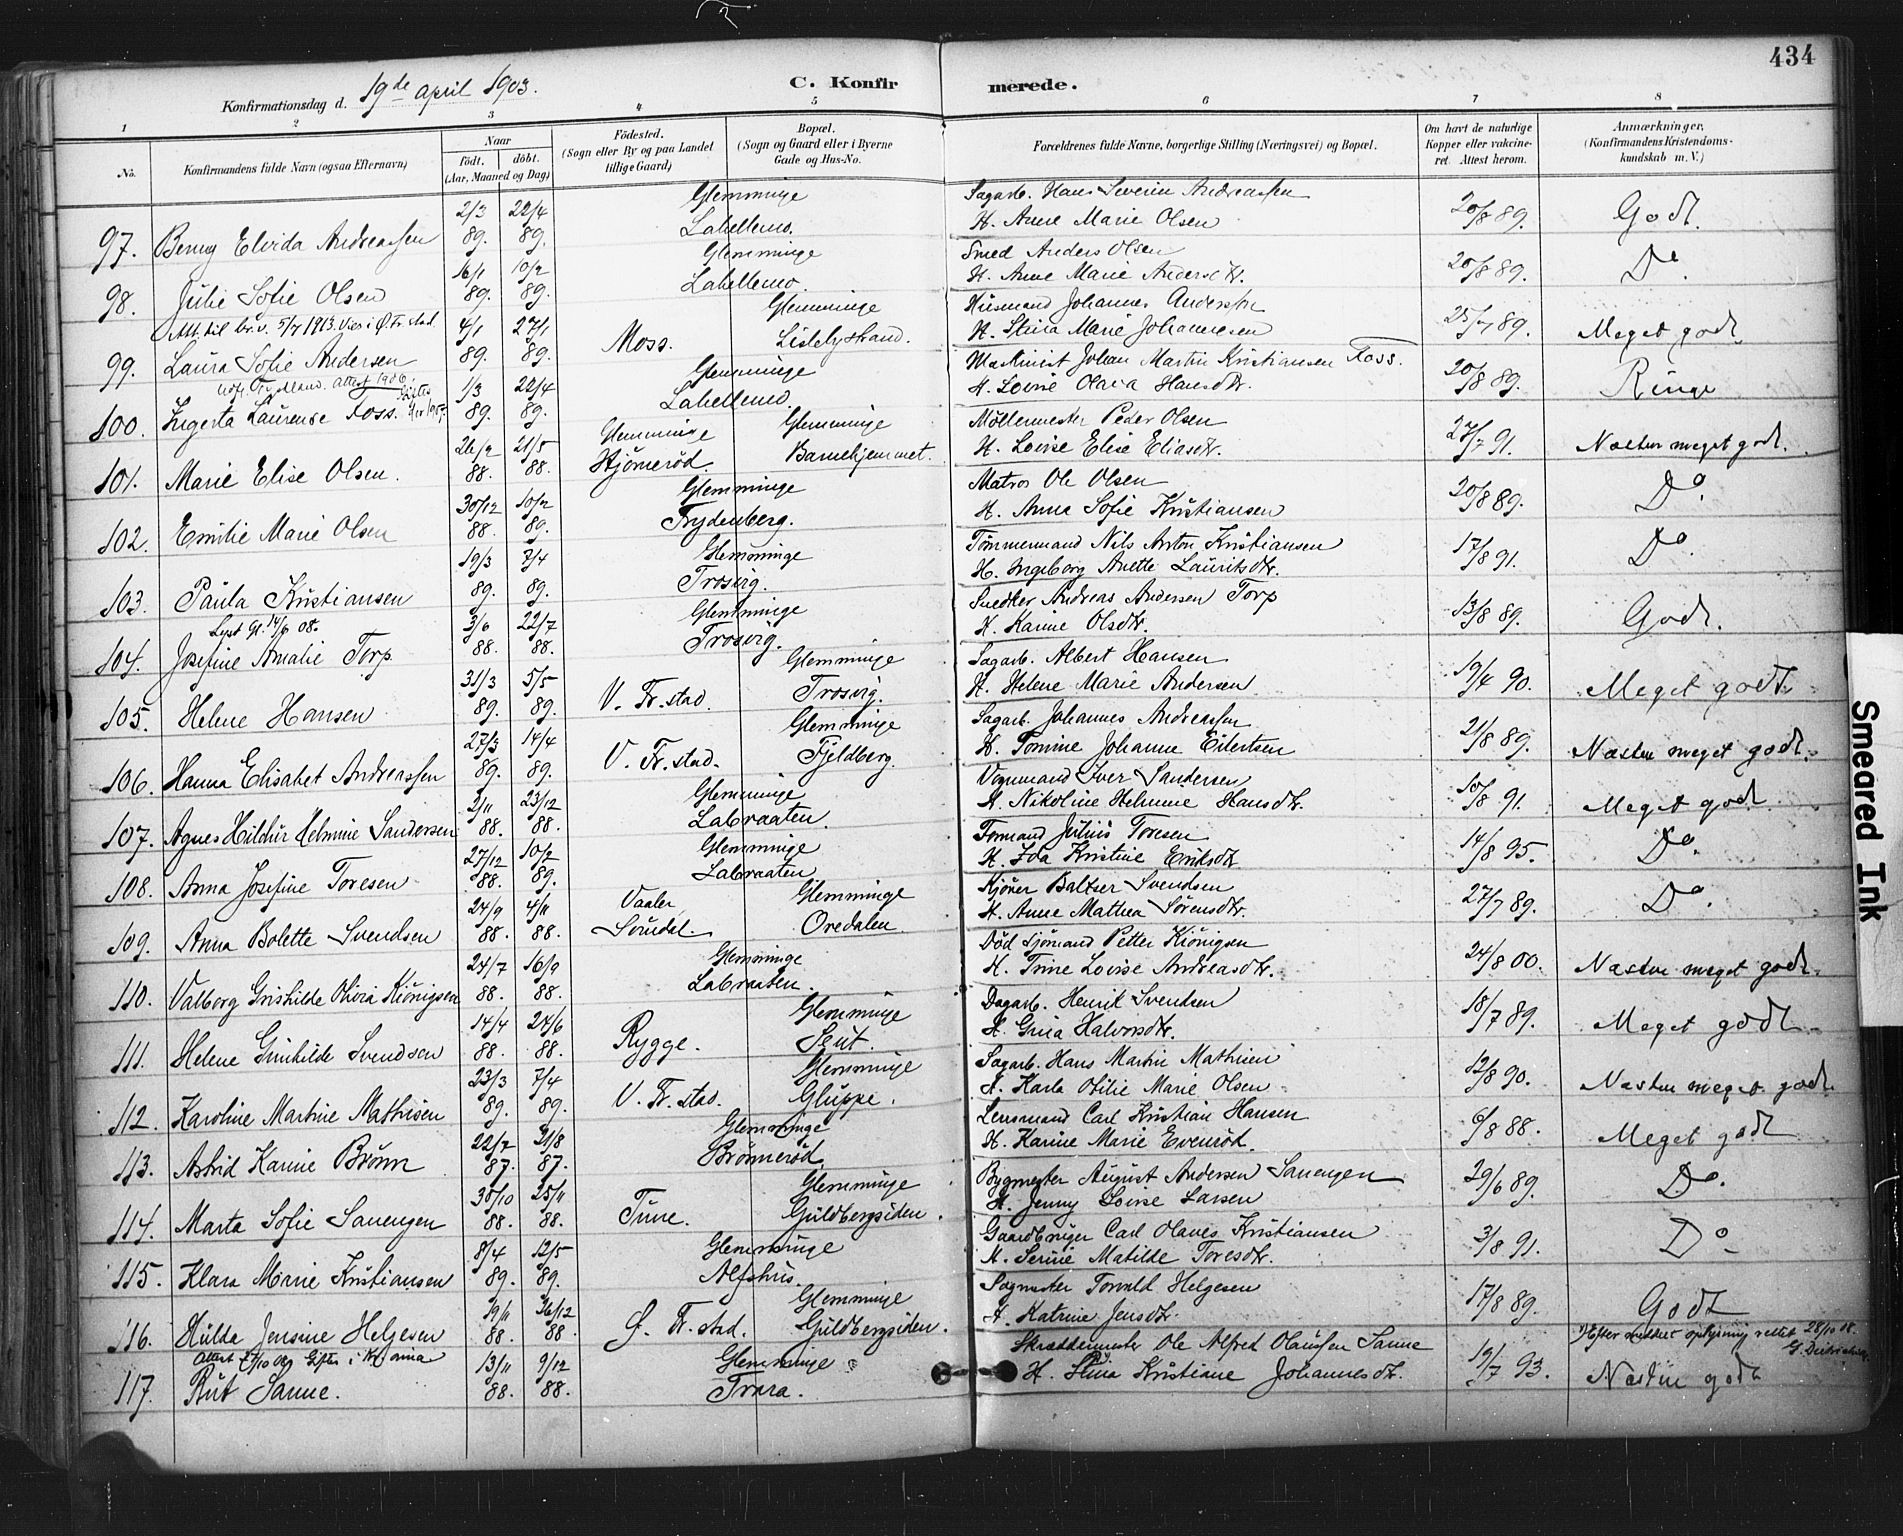 434
Konfirmationsdag d. 19de april 1903.
C. Konfirmerede.
1 2 3 4 5 6 7 8
No.
Konfirmandens fulde Navn (ogsaa Efternavn)
Naar
født. døbt.
(Aar, Maaned og Dag)
Fødested.
(Sogn eller By og paa Landet tillige Gaard)
Bopæl.
(Sogn og Gaard eller i Byerne Gade og Hus-No.
Forældrenes fulde Navne, borgerlige Stilling (Næringsvei) og Bopæl.
Om havt de naturlige Kopper eller vaccineret. Attest herom.
Anmærkninger.
(Konfirmandens Kristendomskundskab m. V.)
2/3 22/4 Glemminge Sagarb. Hans Severin Andreassen
97. Benny Elvida Andreassen 89. 89. Lahellemo. H. Anne Marie Olsen 20/8 89. Godt.
16/1 10/2 Glemminge Smed Anders Olsen
98. Julie Sofie Olsen 89. 89. Lahellemo. H. Anne Marie Andersdtr. 20/8 89. Do.
Att. til br. v. 5/7 1913. Vies i Ø. Fr.stad.
4/1 27/1 Glemminge Husmand Johannes Anderssen
99. Laura Sofie Andersen 89. 89. Moss. Lislebystrand. H. Stina Marie Johannesen 25/7 89. Meget godt.
attest 1906. Giftes
1/3 22/4 Glemminge Maskinist Johan Martin Kristiansen Foss.
100. Ingerta Laurense Foss. 89. 89. Lahellemo. H. Lovise Olava Hansdtr. 20/8 89. Ringe
26/2 21/5 Glemminge Glemminge Møllermester Peder Olsen
101. Marie Elise Olsen. 88. 88. Hjørnerød. Barnehjemmet. H. Lovise Elise Eliasdtr. 27/7 91. Næsten meget godt.
30/12 10/2 Glemminge Matros Ole Olsen
102. Emilie Marie Olsen 88. 89. Frydenberg. H. Anna Sofie Kristiansen 20/8 89. Do.
19/3 7/4 Glemminge Tømmermand Nils Anton Kristiansen
103. Paula Kristiansen 89. 89. Trosvig. H. Ingeborg Anette Lauritsdtr. 17/8 91. Do.
Lyst Gl. 14/6 08.
3/6 22/7 Glemminge Snedker Andreas Andersen Torp
104. Josefine Amalie Torp 88. 88. Trosvig. H. Karine Olsdtr. 13/8 89. Godt.
31/3 5/5 Glemminge Sagarb. Albert Hansen
105. Helene Hansen 89. 89. V. Fr.stad. Trosvig. H. Helene Marie Andersen 19/4 90. Meget godt.
27/3 14/4 Glemminge Sagarb. Johannes Andreassen
106. Hanna Elisabet Andreassen 89. 89. V. Fr.stad. Fjeldberg. H. Tomine Johanne Eilertsen 21/8 89. Næsten meget godt.
2/11 23/12 Glemminge Vognmand Iver Sandersen
107. Agnes Hildur Helmine Sandersen 88. 88. Labraaten. H. Nikoline Helmine Hansdtr. 10/8 91. Meget godt.
27/12 10/2 Glemminge Formand Julius Toresen
108. Anna Josefine Toresen 88. 89. Labraaten H. Ida Kristine Eriksdtr. 14/8 95. Do.
24/9 4/11 Vaaler Glemminge Kjører Baltser Svendsen
109. Anna Bolette Svendsen 88. 88. Svindal. Oredalen. H. Anne Mathea Sørensdtr. 27/7 89. Do.
24/7 16/9 Glemminge Død Sjømand Petter Kiönigsen
110. Valborg Grishilde Olivia Kiönigsen 88. 88. Labraaten. H. Trine Lovise Andreasdtr. 24/8 00. Næsten meget godt.
14/4 24/6 Glemminge Dagarb. Henrik Svendsen
111. Helene Gunhilde Svendsen 88. 88. Rygge. Seut. H. Grina Halvorsdtr. 18/7 89. Meget godt.
23/3 7/4 Glemminge Sagarb. Hans Martin Mathisen
112. Karoline Martine Mathisen 89. 89. V. Fr.stad. Gluppe. H. Karla Otilie Marie Olsen 12/8 90. Næsten meget godt.
22/7 21/8 Glemminge Lensmand Carl Kristian Hansen
113. Astrid Karine Brønn 87. 87. Brønnerød. H. Karine Marie Evenrød. 6/8 88. Meget godt
30/10 25/11 Glemminge Bygmester August Andersen Sanengen
114. Marta Sofie Sanengen 88. 88. Tune. Guldbergsiden. H. Jenny Lovise Larsen 29/6 89. Do.
8/4 12/5 Glemminge Gaardbruger Carl Olaves Kristiansen
115. Klara Marie Kristiansen 89. 89. Alfshus. H. Serine Matilde Toresdtr. 3/8 91. Do.
19/11 26/12 Glemminge Sagmester Torvald Helgesen
116. Hulda Jensine Helgesen 88. 88. Ø. Fr.stad. Guldbergsiden. H. Katrine Jensdtr. 17/8 89. Godt
Attest 27/10 08 Giftes i Kr.ania
1) Efter meddelt oplysning rettet 28/10 08.
13/11 9/12 Glemminge Skræddermester Ole Alfred Olaussen Sanne
117. Rut Sanne. 88. 88. Trara. H. Stina Kristiane Johannesdtr. 19/7 93. Næsten godt
Smeared Ink